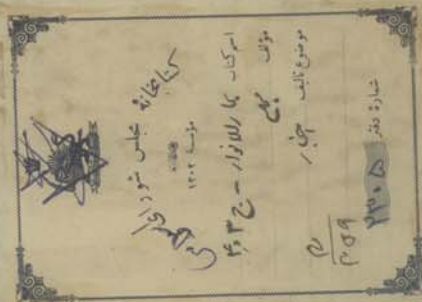 کتابخانه مجلس شورای ملی
مؤسسه ۱۳۰۲
اسم کتاب بحارالانوار - ج ۳ و ۴
مؤلف
موضوع تألیف اخبار
شمارهٔ دفتر ۲۳۰۵